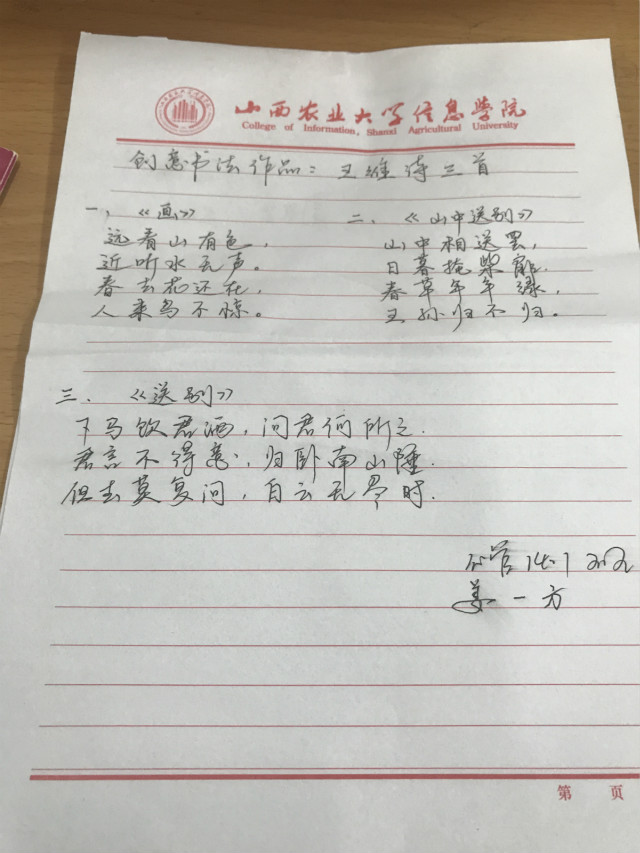 山西农业大学信息学院
College of Information, Shanxi Agricultural University
创意书法作品：王维诗三首
一、《画》
远看山有色，
近听水无声。
春去花还在，
人来鸟不惊。
二、《山中送别》
山中相送罢，
日暮掩柴扉。
春草年年绿，
王孙归不归。
三、《送别》
下马饮君酒，问君何所之.
君言不得意，归卧南山陲.
但去莫复问，白云无尽时.
姜一方
第 页